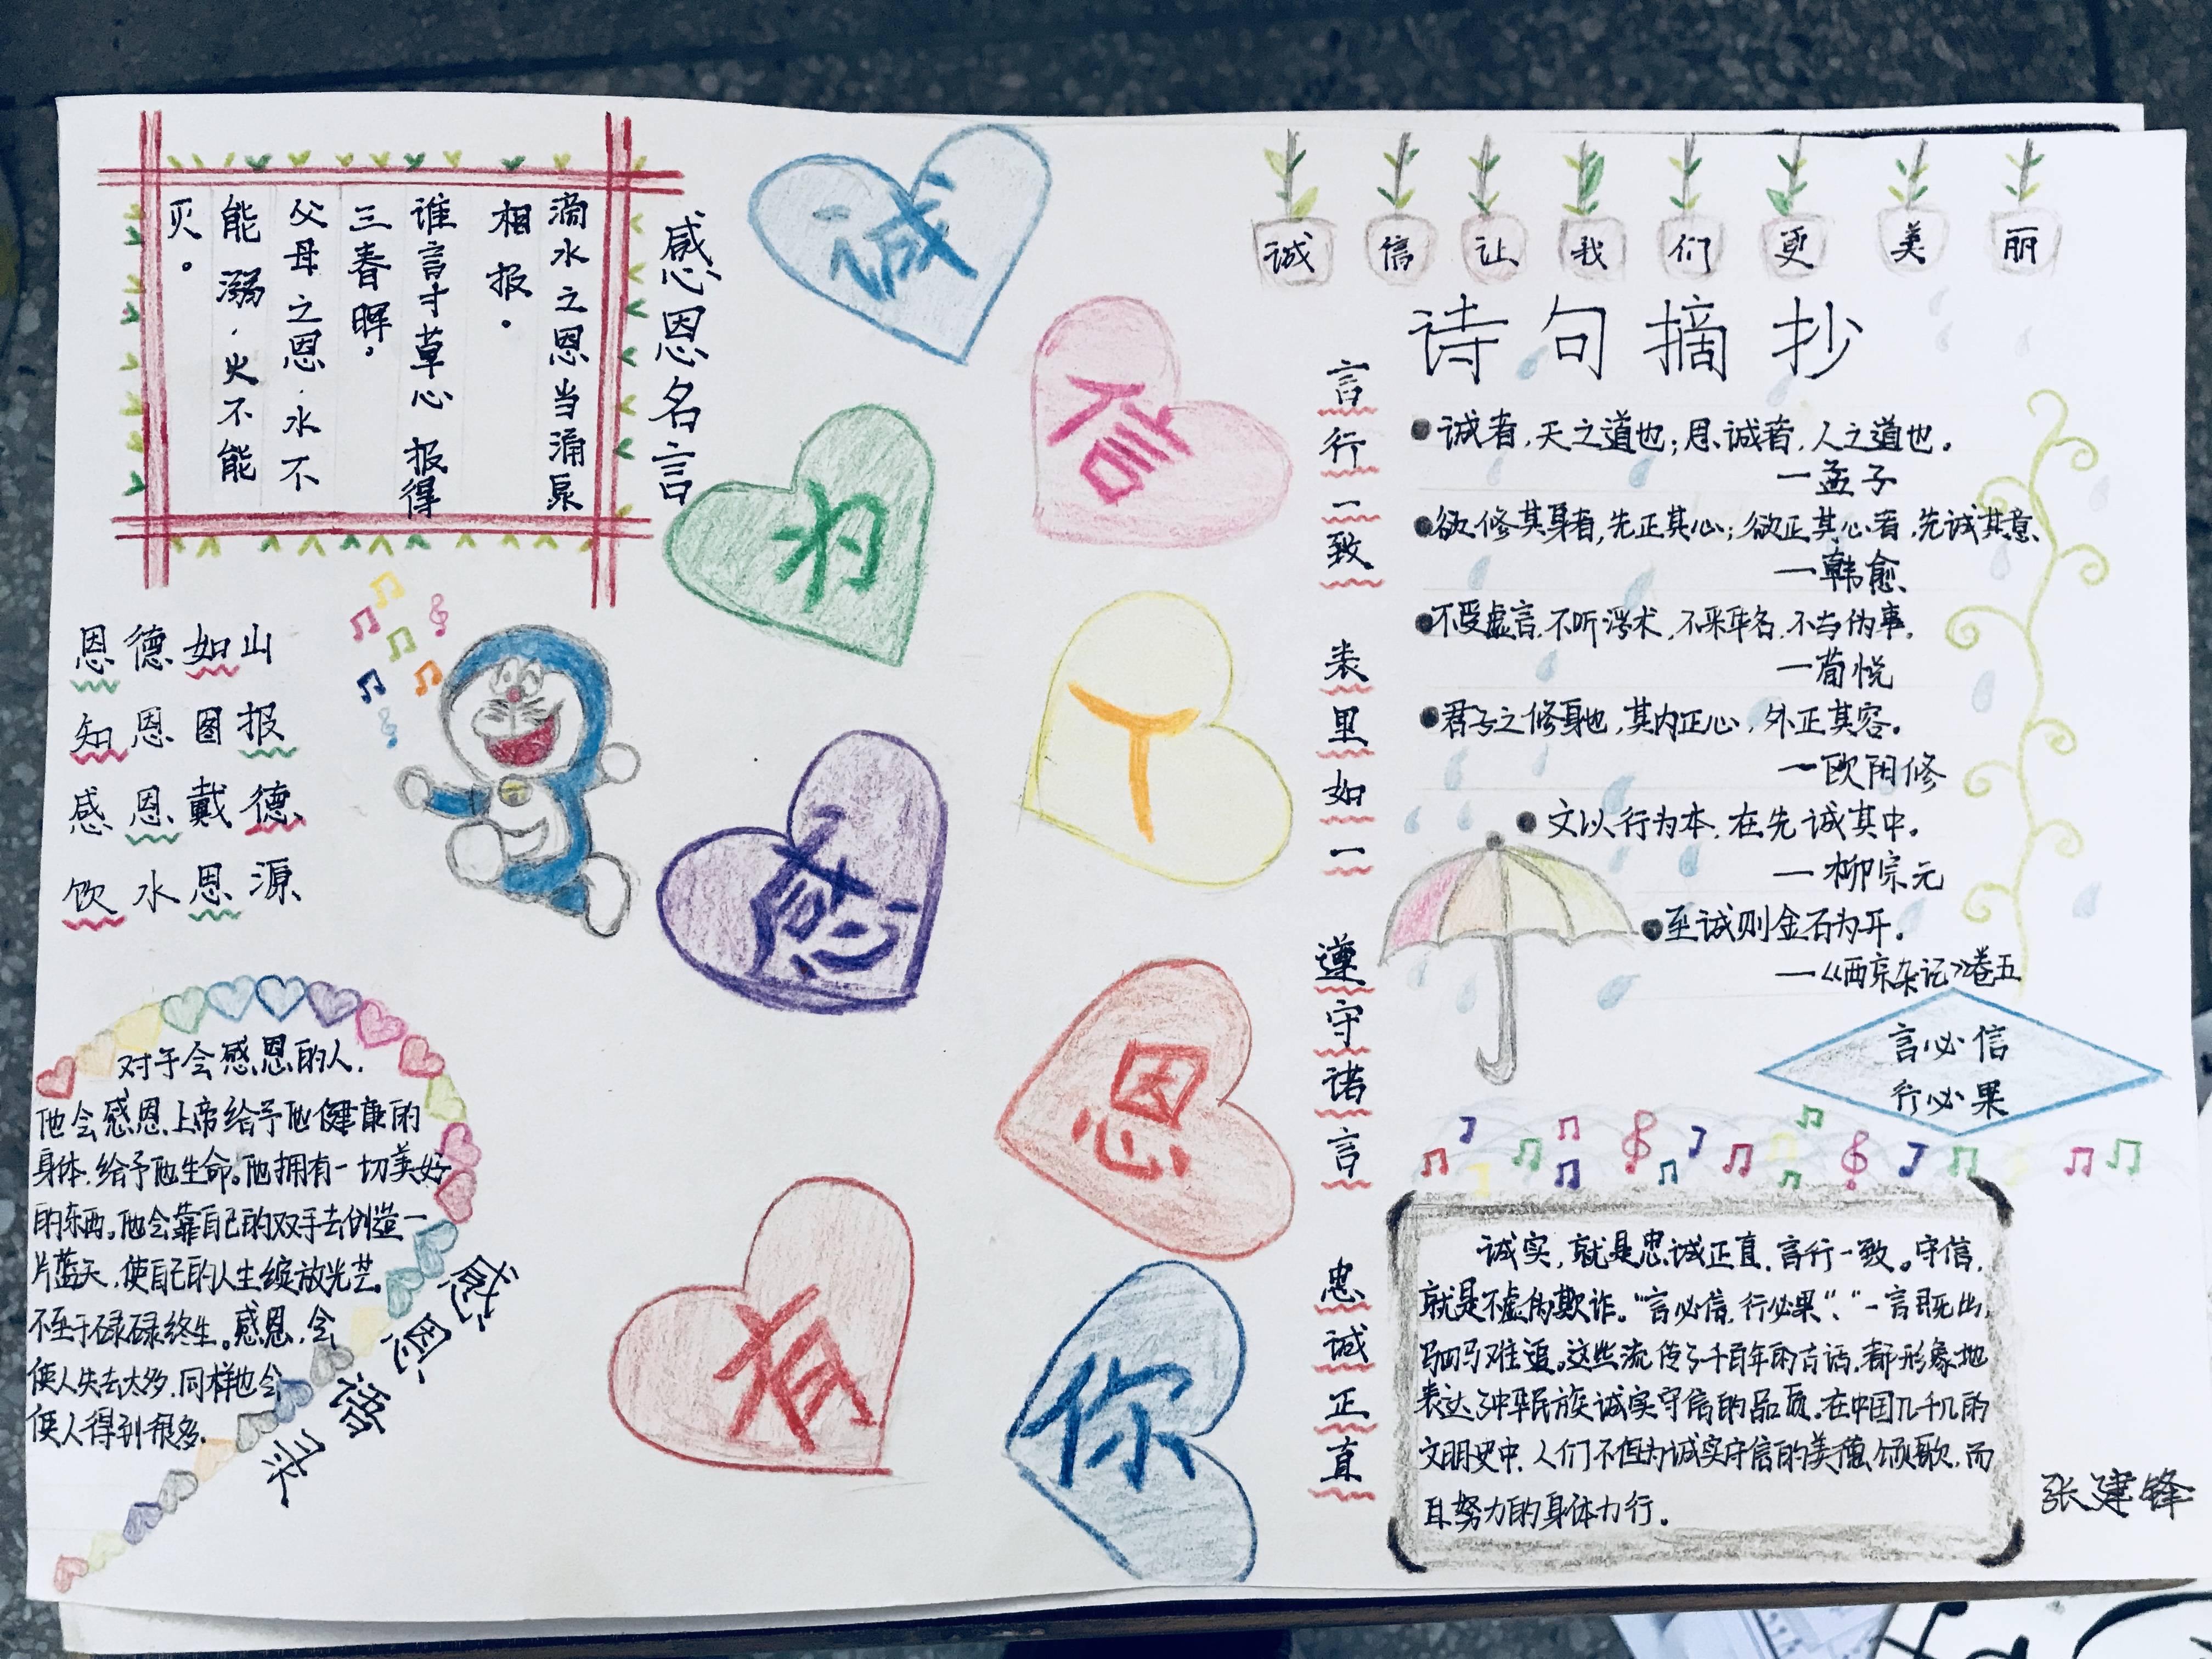 感恩名言
滴水之恩当涌泉
相报。
谁言寸草心 报得
三春晖。
父母之恩.水不
能溺.火不能
灭。
恩德如山
知恩图报
感恩戴德
饮水思源
对于会感恩的人.
他会感恩上帝给予他健康的
身体.给予他生命。他拥有一切美好
的东西。他会靠自己的双手去创造一
片蓝天.使自己的人生绽放光芒.
不至于碌碌终生。感恩.会
使人失去太多.同样也会
使人得到很多.
感恩语录
诚
信
为
人
感
恩
有
你
言行一致
表里如一
遵守诺言
忠诚正直
诚信让我们更美丽
诗句摘抄
●诚者,天之道也;思诚者,人之道也。
—孟子
●欲修其身者,先正其心;欲正其心者,先诚其意、
—韩愈
●不受虚言.不听浮术,不采华名.不当伪事.
—荀悦
●君子之修身也,其内正心,外正其容。
—欧阳修
●文以行为本.在先诚其中.
—柳宗元
●至诚则金石为开.
—《西京杂记》卷五
言必信
行必果
诚实,就是忠诚正直.言行一致。守信.
就是不虚伪欺诈。“言必信.行必果”、“一言既出,
驷马难追。这些流传了千百年的古话.都形象地
表达了中华民族诚实守信的品质.在中国几千几的
文明史中.人们不但为诚实守信的美德颂歌.而
且努力的身体力行.
张建锋